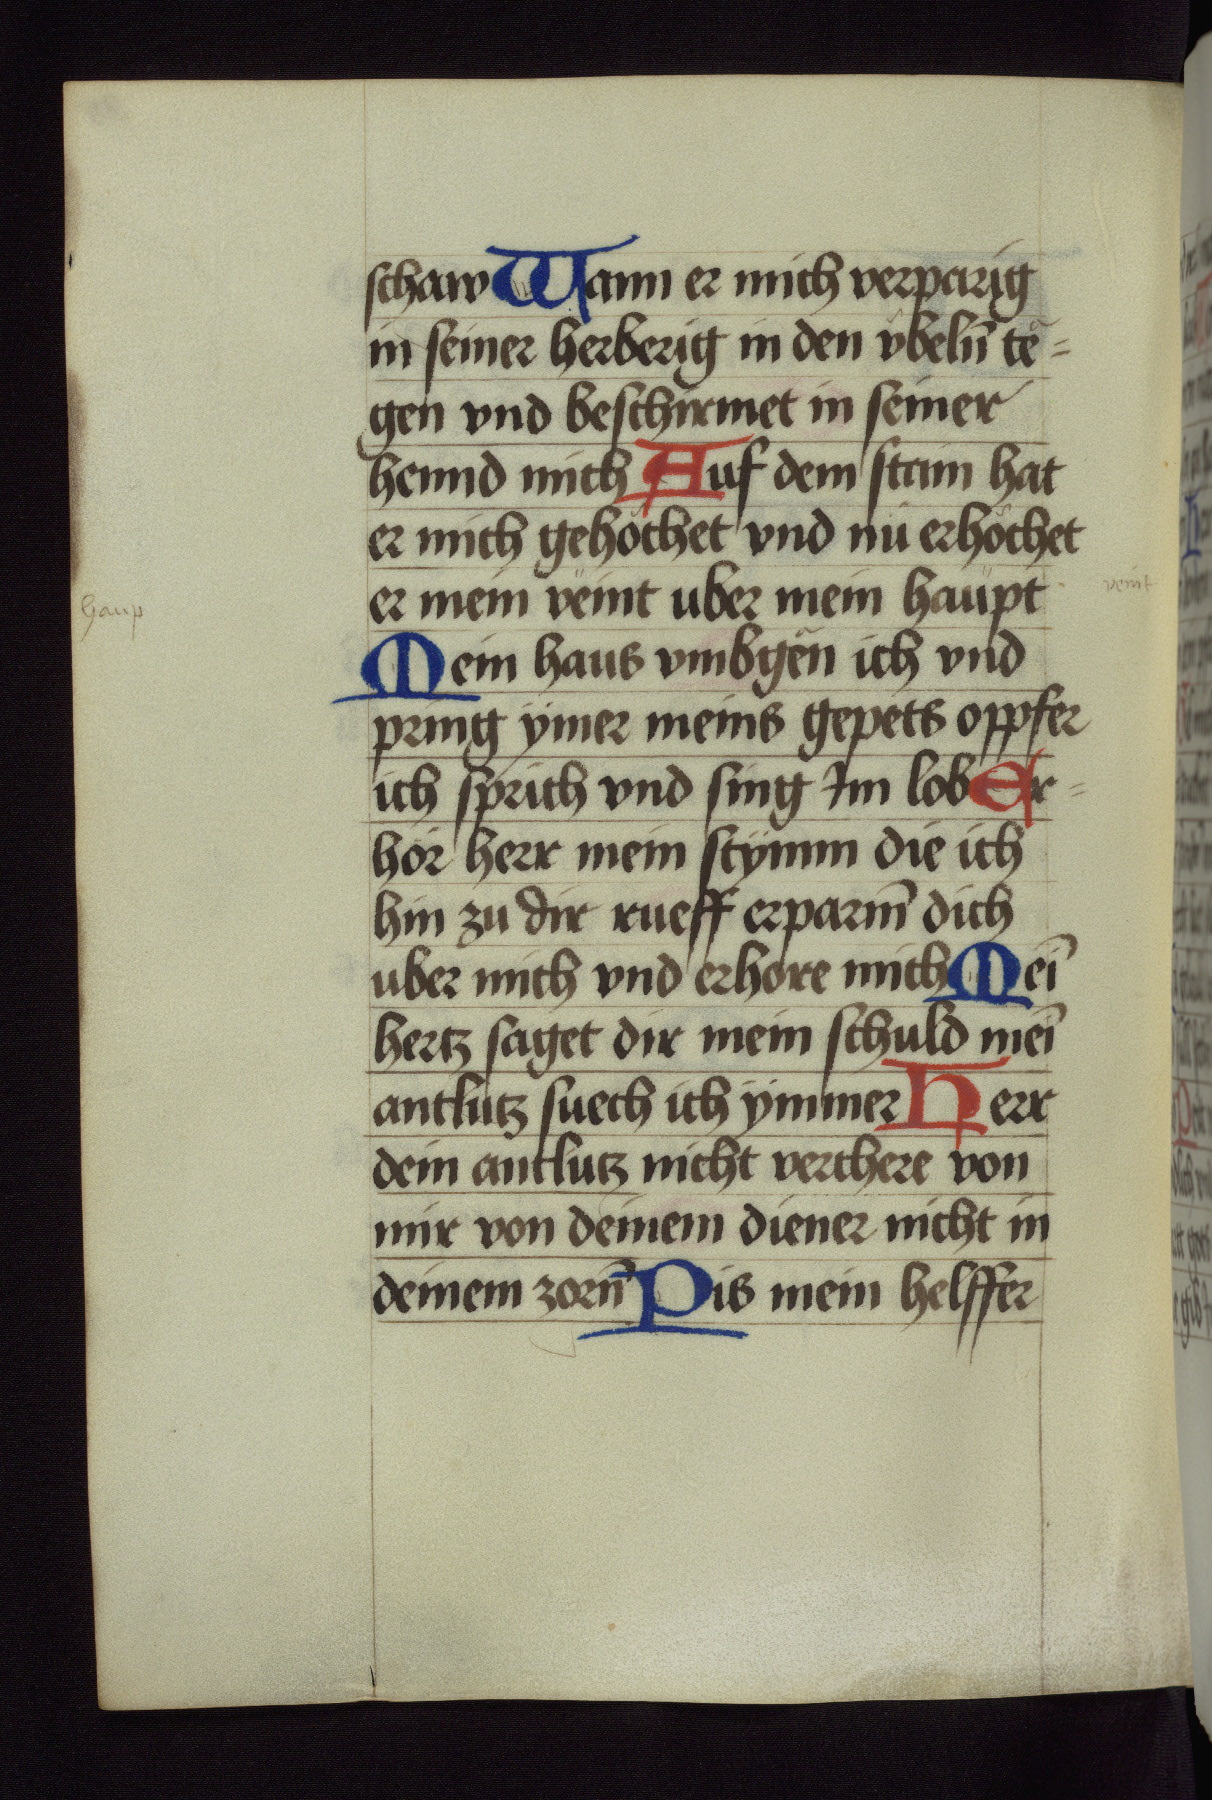 schaw Wann er mich verparig
in seiner herberig in den v̈beln̄ të=
gen vnd beschirmet in seiner
hennd mich Auf dem stain hat
er mich gehöchet vnd nu erhöchet
er mein veint uber mein haupt
veint
haup
Mein haus vmbgen ich vnd
pring ÿmer meins gepets oppfer
ich sprich vnd sing Im lob Er=
hör herr mein stÿmm die ich
hin zu dir rueff erparm̄ dich
uber mich vnd erhore mich Meī
hertz saget dir mein schuld meī
antlutz suech ich ÿmmer Herr
dein antlutz nicht verchere von
mir von deinem diener nicht in
deinem zorn̄ Pis mein helffer